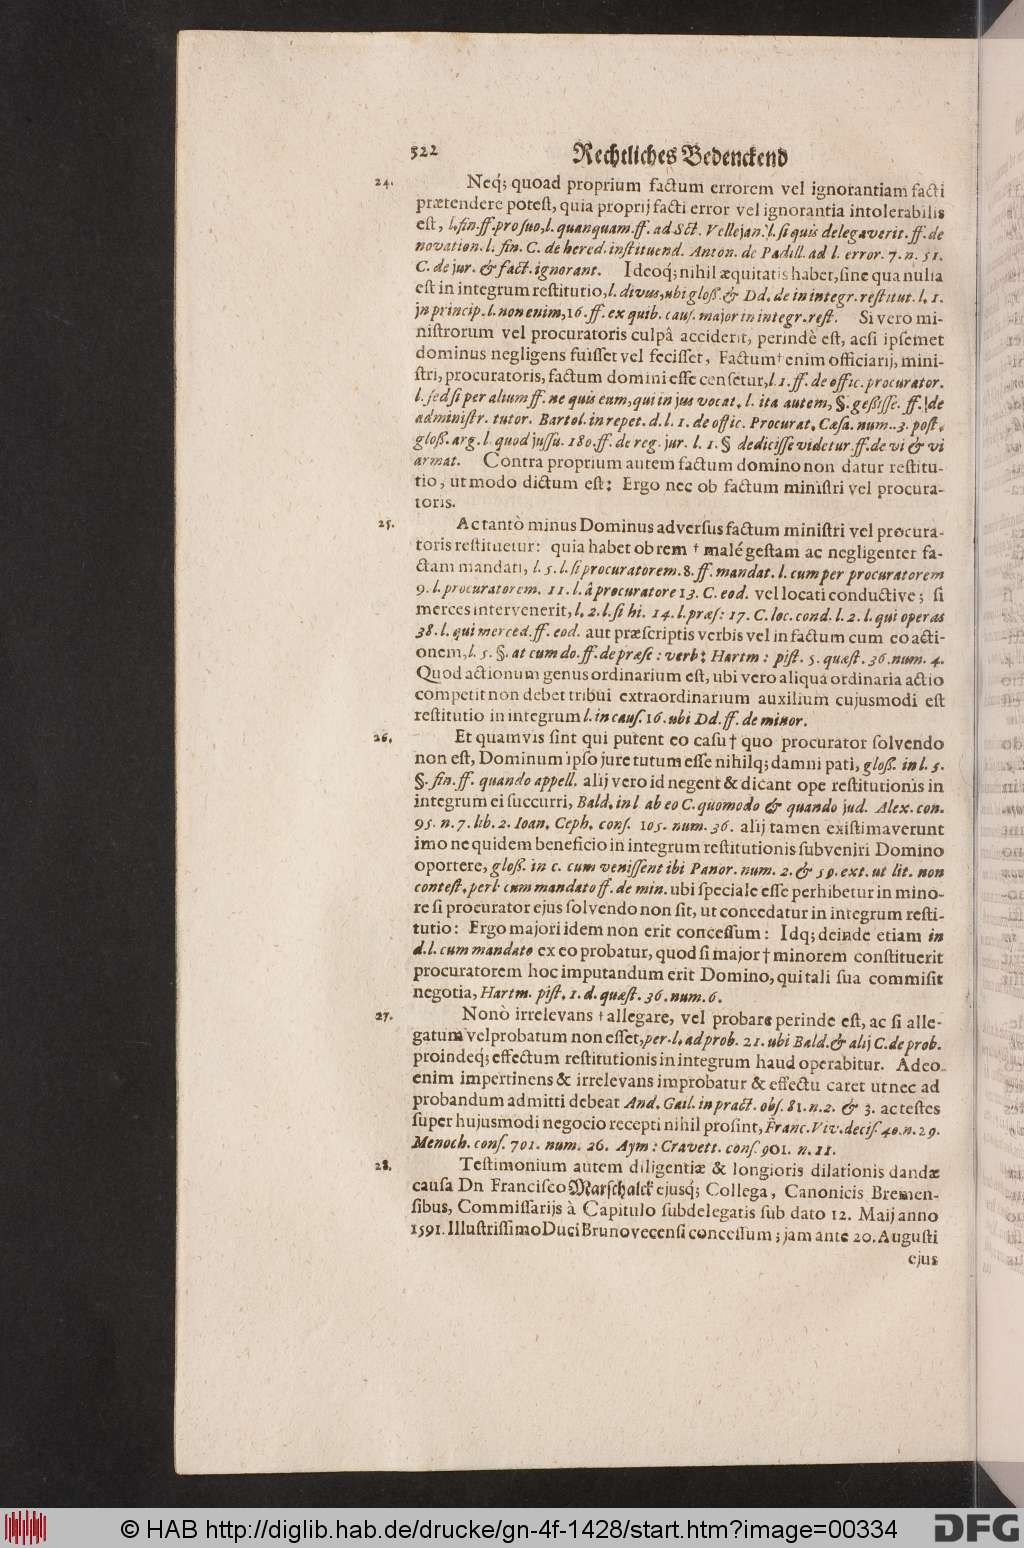 522 Rechtliches Bedenckend
24. Neq́; quoad proprium factum errorem vel ignorantiam facti
prætendere potest, quia proprij facti error vel ignorantia intolerabilis
est, l. fin. ff. pro suo, l. quanquam. ff. ad Sct. Vellejan. l. si quis delegaverit. ff. de
novation. l. fin. C. de hered. instituend. Anton. de Padill. ad l. error. 7. n. 51.
C. de jur. & fact. ignorant. Ideoq́; nihil æquitatis habet, sine qua nulla
est in integrum restitutio, l. divus, ubi gloß. & Dd. de in integr. restitut. l. 1.
in princip. l. non enim, 16. ff. ex quib. caus. major in integr. rest. Si vero mi-
nistrorum vel procuratoris culpâ acciderit, perindè est, acsi ipsemet
dominus negligens fuisset vel fecisset, Factum † enim officiarij, mini-
stri, procuratoris, factum domini esse censetur, l. 1. ff. de offic. procurator.
l. sed si per alium ff. ne quis eum, qui in jus vocat. l. ita autem, §. geßisse. ff. de
administr. tutor. Bartol. in repet. d. l. 1. de offic. Procurat. Cæsa. num. 3. post.
gloß. arg. l. quod jussu. 180. ff. de reg. jur. l. 1. § dedicisse videtur. ff. de vi & vi
armat. Contra proprium autem factum domino non datur restitu-
tio, ut modo dictum est: Ergo nec ob factum ministri vel procura-
toris.
25. Ac tantò minus Dominus adversus factum ministri vel procura-
toris restituetur: quia habet ob rem † malé gestam ac negligenter fa-
ctam mandati, l. 5. l. si procuratorem. 8. ff. mandat. l. cum per procuratorem
9. l. procuratorem. 11. l. â procuratore 13. C. eod. vel locati conductive; si
merces intervenerit, l. 2. l. si hi. 14. l. præs: 17. C. loc. cond. l. 2. l. qui operas
38. l. qui merced. ff. eod. aut præscriptis verbis vel in factum cum eo acti-
onem, l. 5. §. at cum do. ff. de præsc: verb: Hartm: pist. 5. quæst. 36. num. 4.
Quod actionum genus ordinarium est, ubi vero aliqua ordinaria actio
competit non debet tribui extraordinarium auxilium cujusmodi est
restitutio in integrum l. in caus. 16. ubi Dd. ff. de minor.
26. Et quamvis sint qui putent eo casu † quo procurator solvendo
non est, Dominum ipso jure tutum esse nihilq; damni pati, gloß. in l. 5.
§. fin. ff. quando appell. alij vero id negent & dicant ope restitutionis in
integrum ei succurri, Bald. in l ab eo C. quomodo & quando jud. Alex. con.
95. n. 7. lib. 2. Ioan. Ceph. cons. 105. num. 36. alij tamen existimaverunt
imo ne quidem beneficio in integrum restitutionis subveniri Domino
oportere, gloß. in c. cum venissent ibi Panor. num. 2. & 59. ext. ut lit. non
contest. per l. cum mandato ff. de min. ubi speciale esse perhibetur in mino-
re si procurator ejus solvendo non sit, ut concedatur in integrum resti-
tutio: Ergo majori idem non erit concessum: Idq; deinde etiam in
d. l. cum mandato ex eo probatur, quod si major † minorem constituerit
procuratorem hoc imputandum erit Domino, qui tali sua commisit
negotia, Hartm. pist. 1. d. quæst. 36. num. 6.
27. Nonò irrelevans † allegare, vel probare perinde est, ac si alle-
gatum vel probatum non esset, per. l. ad prob. 21. ubi Bald. & alij C. de prob.
proindeq́; effectum restitutionis in integrum haud operabitur. Adeo
enim impertinens & irrelevans improbatur & effectu caret ut nec ad
probandum admitti debeat And. Gail. in pract. obs. 81. n. 2. & 3. ac testes
super hujusmodi negocio recepti nihil prosint, Franc. Viv. decis. 40. n. 29.
Menoch. cons. 701. num. 26. Aym: Cravett. cons. 901. n. 11.
28. Testimonium autem diligentiæ & longioris dilationis dandæ
causa Dn Francisco Marschalck ejusq́; Collega, Canonicis Bremen-
sibus, Commissarijs à Capitulo subdelegatis sub dato 12. Maij anno
1591. Illustrissimo Duci Brunovecensi concessum; jam ante 20. Augusti
ejus
© HAB http://diglib.hab.de/drucke/gn-4f-1428/start.htm?image=00334
DFG